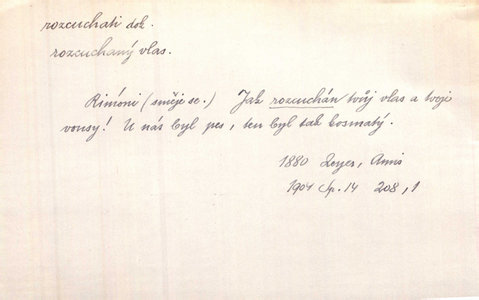 rozcuchati dok.
rozcuchaný vlas.
Rimóni (směje se.) Jak rozcuchán tvůj vlas a tvoje
vousy! U nás byl pes, ten byl tak kosmatý.
1880 Zeyer, Anna
1904 Sp. 14 208, 1